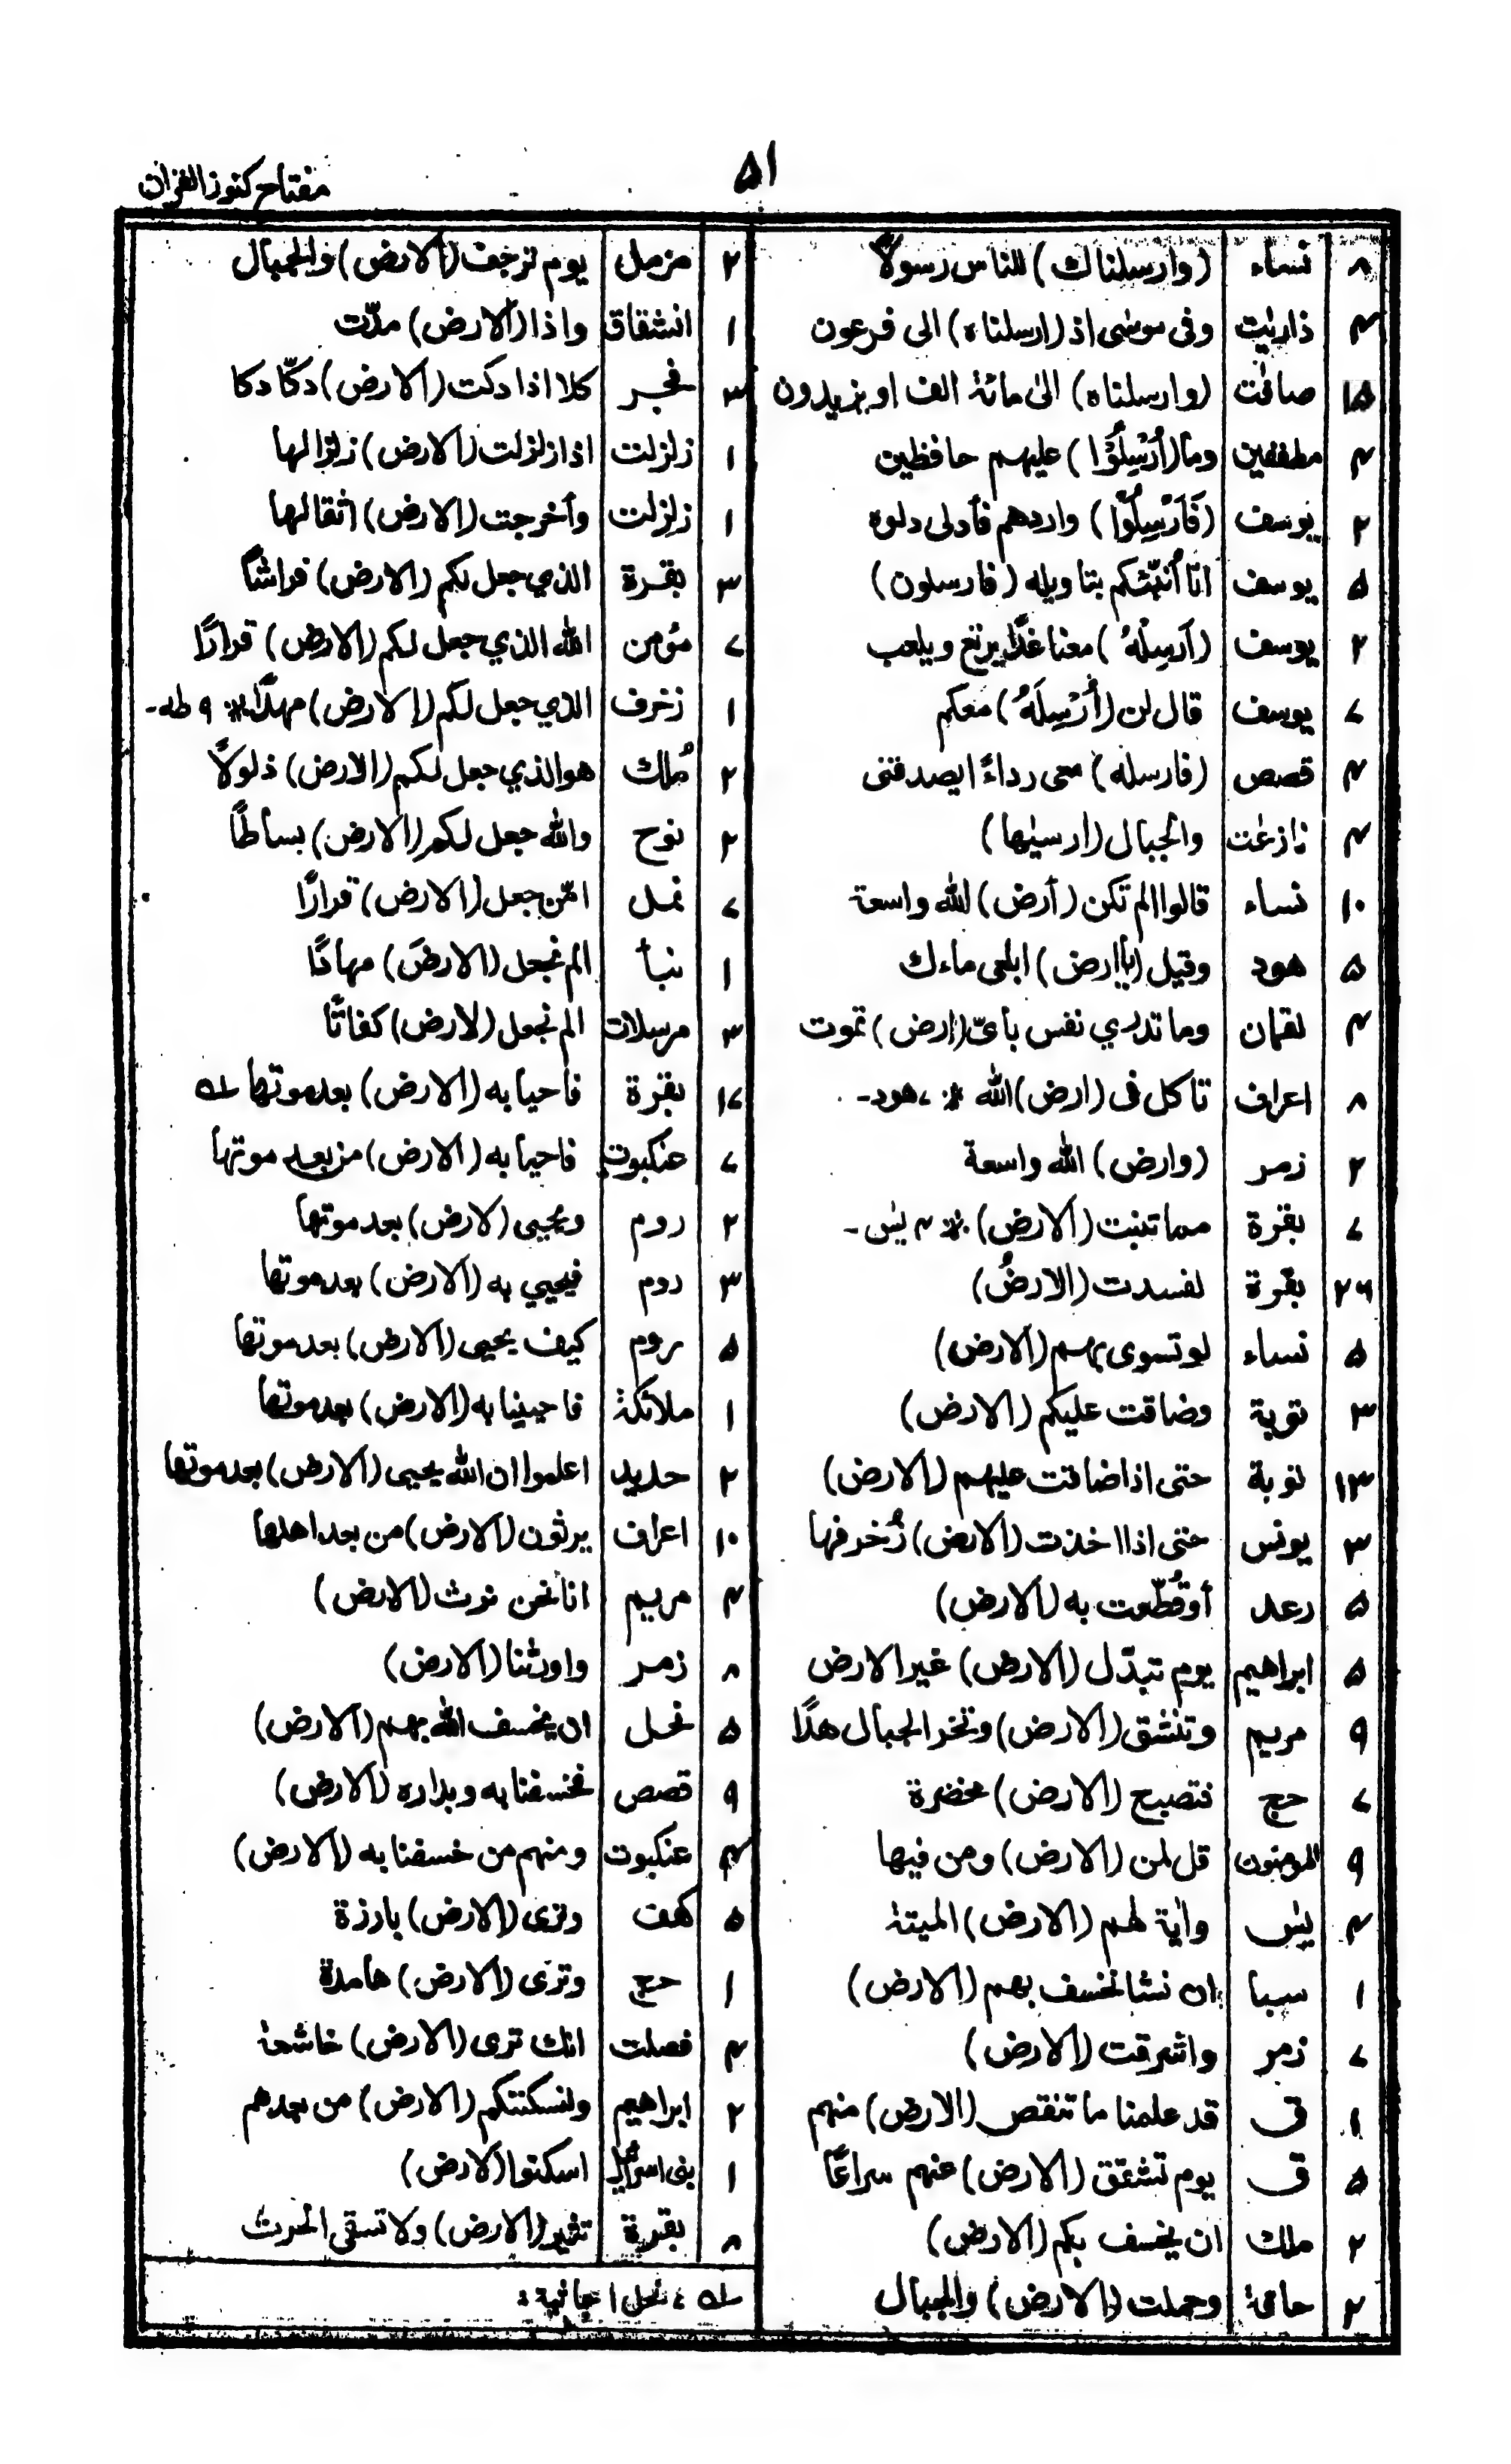 ۵۱
مفتاح كنوز القران
۸ نساء (وارسلناك) للناس رسولاً
۴ ذاریٰت وفى موسٰى اذ (ارسلناه) الى فرعون
۱۵ صافٰت (وارسلناه) الىٰ مائة الف او يزيدون
۴ مطففين وما (أُرْسِلُوْا) عليهم حافظين
۲ يوسف (فَاَرْسِلُوْا) واردهم فأدلى دلوه
۵ يوسف انا أُنبّئكم بتاويله (فارسلون)
۲ يوسف (اَرسِلْهُ) معنا غدًا يرتع ويلعب
۷ يوسف قال لن (أُرْسِلَهُ) معكم
۴ قصص (فارسله) معى رداءً ايصدقنى
۴ نازعٰت والجبال (ارسيٰها)
۱۰ نساء قالوا الم تكن (أرض) الله واسعة
۵ هود وقيل (يأارض) ابلعى ماءك
۴ لقمان وما تدري نفس بأىّ (ارض) تموت
۸ اعراف تاكل فى (ارض) الله ※ ۷ هود-
۲ زمر (وارض) الله واسعة
۷ بقرة مما تنبت (الارض) ※ ۴ يٰس-
۲۶ بقرة لفسدت (الارضُ)
۵ نساء لو تسوى بهم (الارض)
۳ توبة وضاقت عليكم (الارض)
۱۳ توبة حتى اذا ضاقت عليهم (الارض)
۳ يونس حتى اذا اخذت (الارض) زُخرفها
۵ رعد أو قُطّعت به (الارض)
۵ ابراهيم يوم تبدّل (الارض) غير الارض
۹ مريم وتنشق (الارض) وتخر الجبال هدًا
۷ حج فتصبح (الارض) مخضرة
۹ المومنون قل لمن (الارض) ومن فيها
۴ يٰس واٰية لهم (الارض) الميتة
۱ سبا ان نشا نخسف بهم (الارض)
۷ زمر واشرقت (الارض)
۱ ق قد علمنا ما تنقص (الارض) منهم
۵ ق يوم تشقق (الارض) عنهم سراعًا
۲ ملك ان يخسف بكم (الارض)
۲ حاقة وحملت (الارض) والجبال
۲ مزمل يوم ترجف (الارض) والجبال
۱ انشقاق واذا (الارض) مدّت
۳ فجر كلا اذا دكت (الارض) دكّا دكا
۱ زلزلت اذا زلزلت (الارض) زلزالها
۱ زلزلت وأخرجت (الارض) اثقالها
۳ بقرة الذي جعل لكم (الارض) فراشًا
۷ مؤمن الله الذي جعل لكم (الارض) قرارًا
۱ زخرف الذي جعل لكم (الارض) مهدًا ※ ۹ طه-
۲ مُلك هو الذي جعل لكم (الارض) ذلولاً
۲ نوح والله جعل لكم (الارض) بساطًا
۷ نمل امّن جعل (الارض) قرارًا
۱ نبأ الم نجعل (الارضَ) مهادًا
۳ مرسلات الم نجعل (لارض) كفاتًا
۱۷ بقرة فاحيا به (الارض) بعد موتها ؎۵
۷ عنكبوت فاحيا به (الارض) من بعد موتها
۲ روم ويحيى (لارض) بعد موتها
۳ روم فيحيي به (الارض) بعد موتها
۵ روم كيف يحيى (الارض) بعد موتها
۱ ملائكة فاحيينا به (الارض) بعد موتها
۲ حديد اعلموا ان الله يحيى (الارض) بعد موتها
۱۰ اعراف يرثون (الارض) من بعد اهلها
۴ مريم انا نحن نرث (الارض)
۸ زمر واورثنا (الارض)
۵ نحل ان يخسف الله بهم (الارض)
۹ قصص فخسفنا به وبداره (الارض)
۴ عنكبوت ومنهم من خسفنا به (الارض)
۵ كهف وترى (الارض) بارزة
۱ حج وترى (الارض) هامدة
۴ فصلت انك ترى (الارض) خاشعة
۲ ابراهيم ولنسكننكم (الارض) من بعدهم
۱ بنى اسرآءيل اسكنوا (الارض)
۸ بقرة تثير (الارض) ولا تسقى الحرث
؎۵ ۷ نحل ۱ جاثية ۔